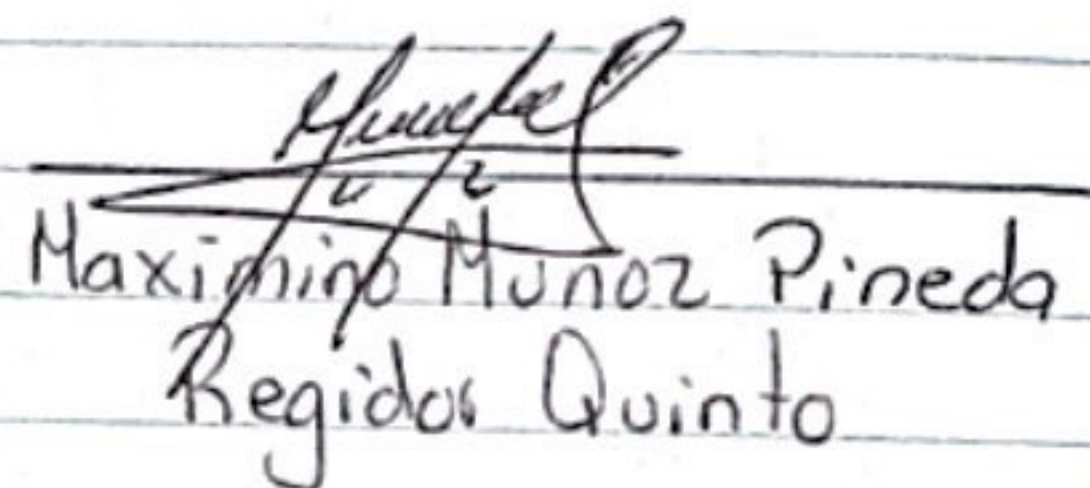 Maximino Munoz Pineda
Regidor Quinto